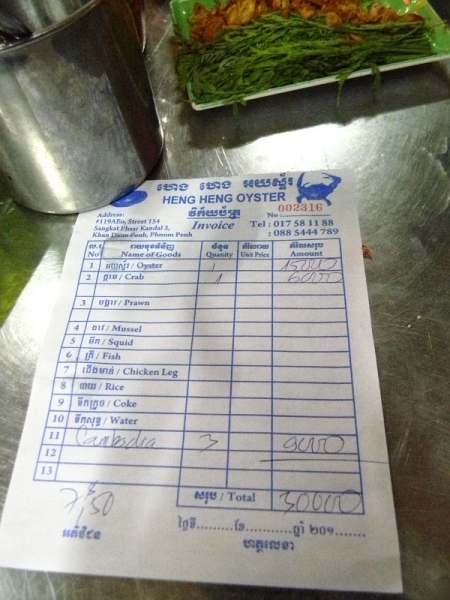 ហេង ហេង អយស្ទ័រ
HENG HENG OYSTER
Address:
#119AEo, Street 154
Sangkat Phsar Kandal 2,
Khan Daun Penh, Phnom Penh
វិក័យប័ត្រ
Invoice
No : 002316
Tel : 017 58 11 88
: 088 5444 789
ល.រ រាយមុខទំនិញ ចំនួន តំលៃរាយ តំលៃសរុប
No Name of Goods Quanity Unit Price Amount
1 អយស្ទ័រ / Oyster 1 15000
2 ក្តាម / Crab 1 6000
3 បង្គារ / Prawn
4 ងាវ / Mussel
5 មឹក / Squid
6 ត្រី / Fish
7 ជើងមាន់ / Chicken Leg
8 បាយ / Rice
9 ទឹកក្រូច / Coke
10 ទឹកសុទ្ធ / Water
11 Cambodia 3 9000
12
13
សរុប / Total 30000
7,50
អតិថិជន
ថ្ងៃទី..........ខែ............ឆ្នាំ ២០១.......
ហត្ថលេខា